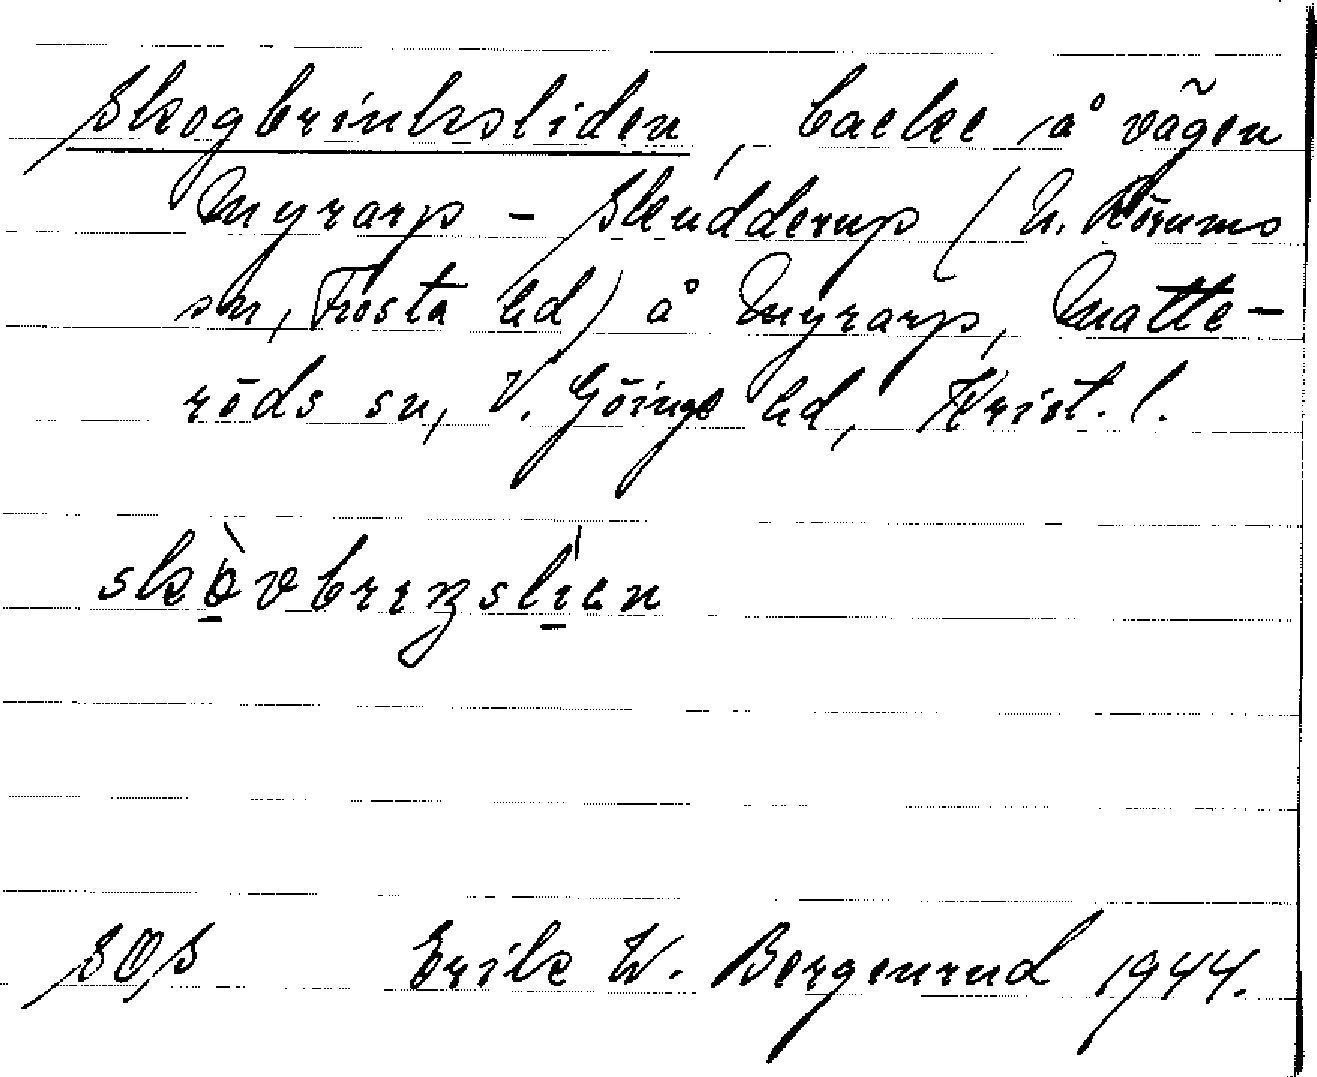 Skogbrinksliden, backe å vägen
Myrarp - Skudderup (N. Rörums
sn, Frosta hd) å Myrarp, Matte-
röds sn, V. Göinge hd, Krist. l.
skòvbriŋslìen
SOS Erik W. Bergenrud 1944.